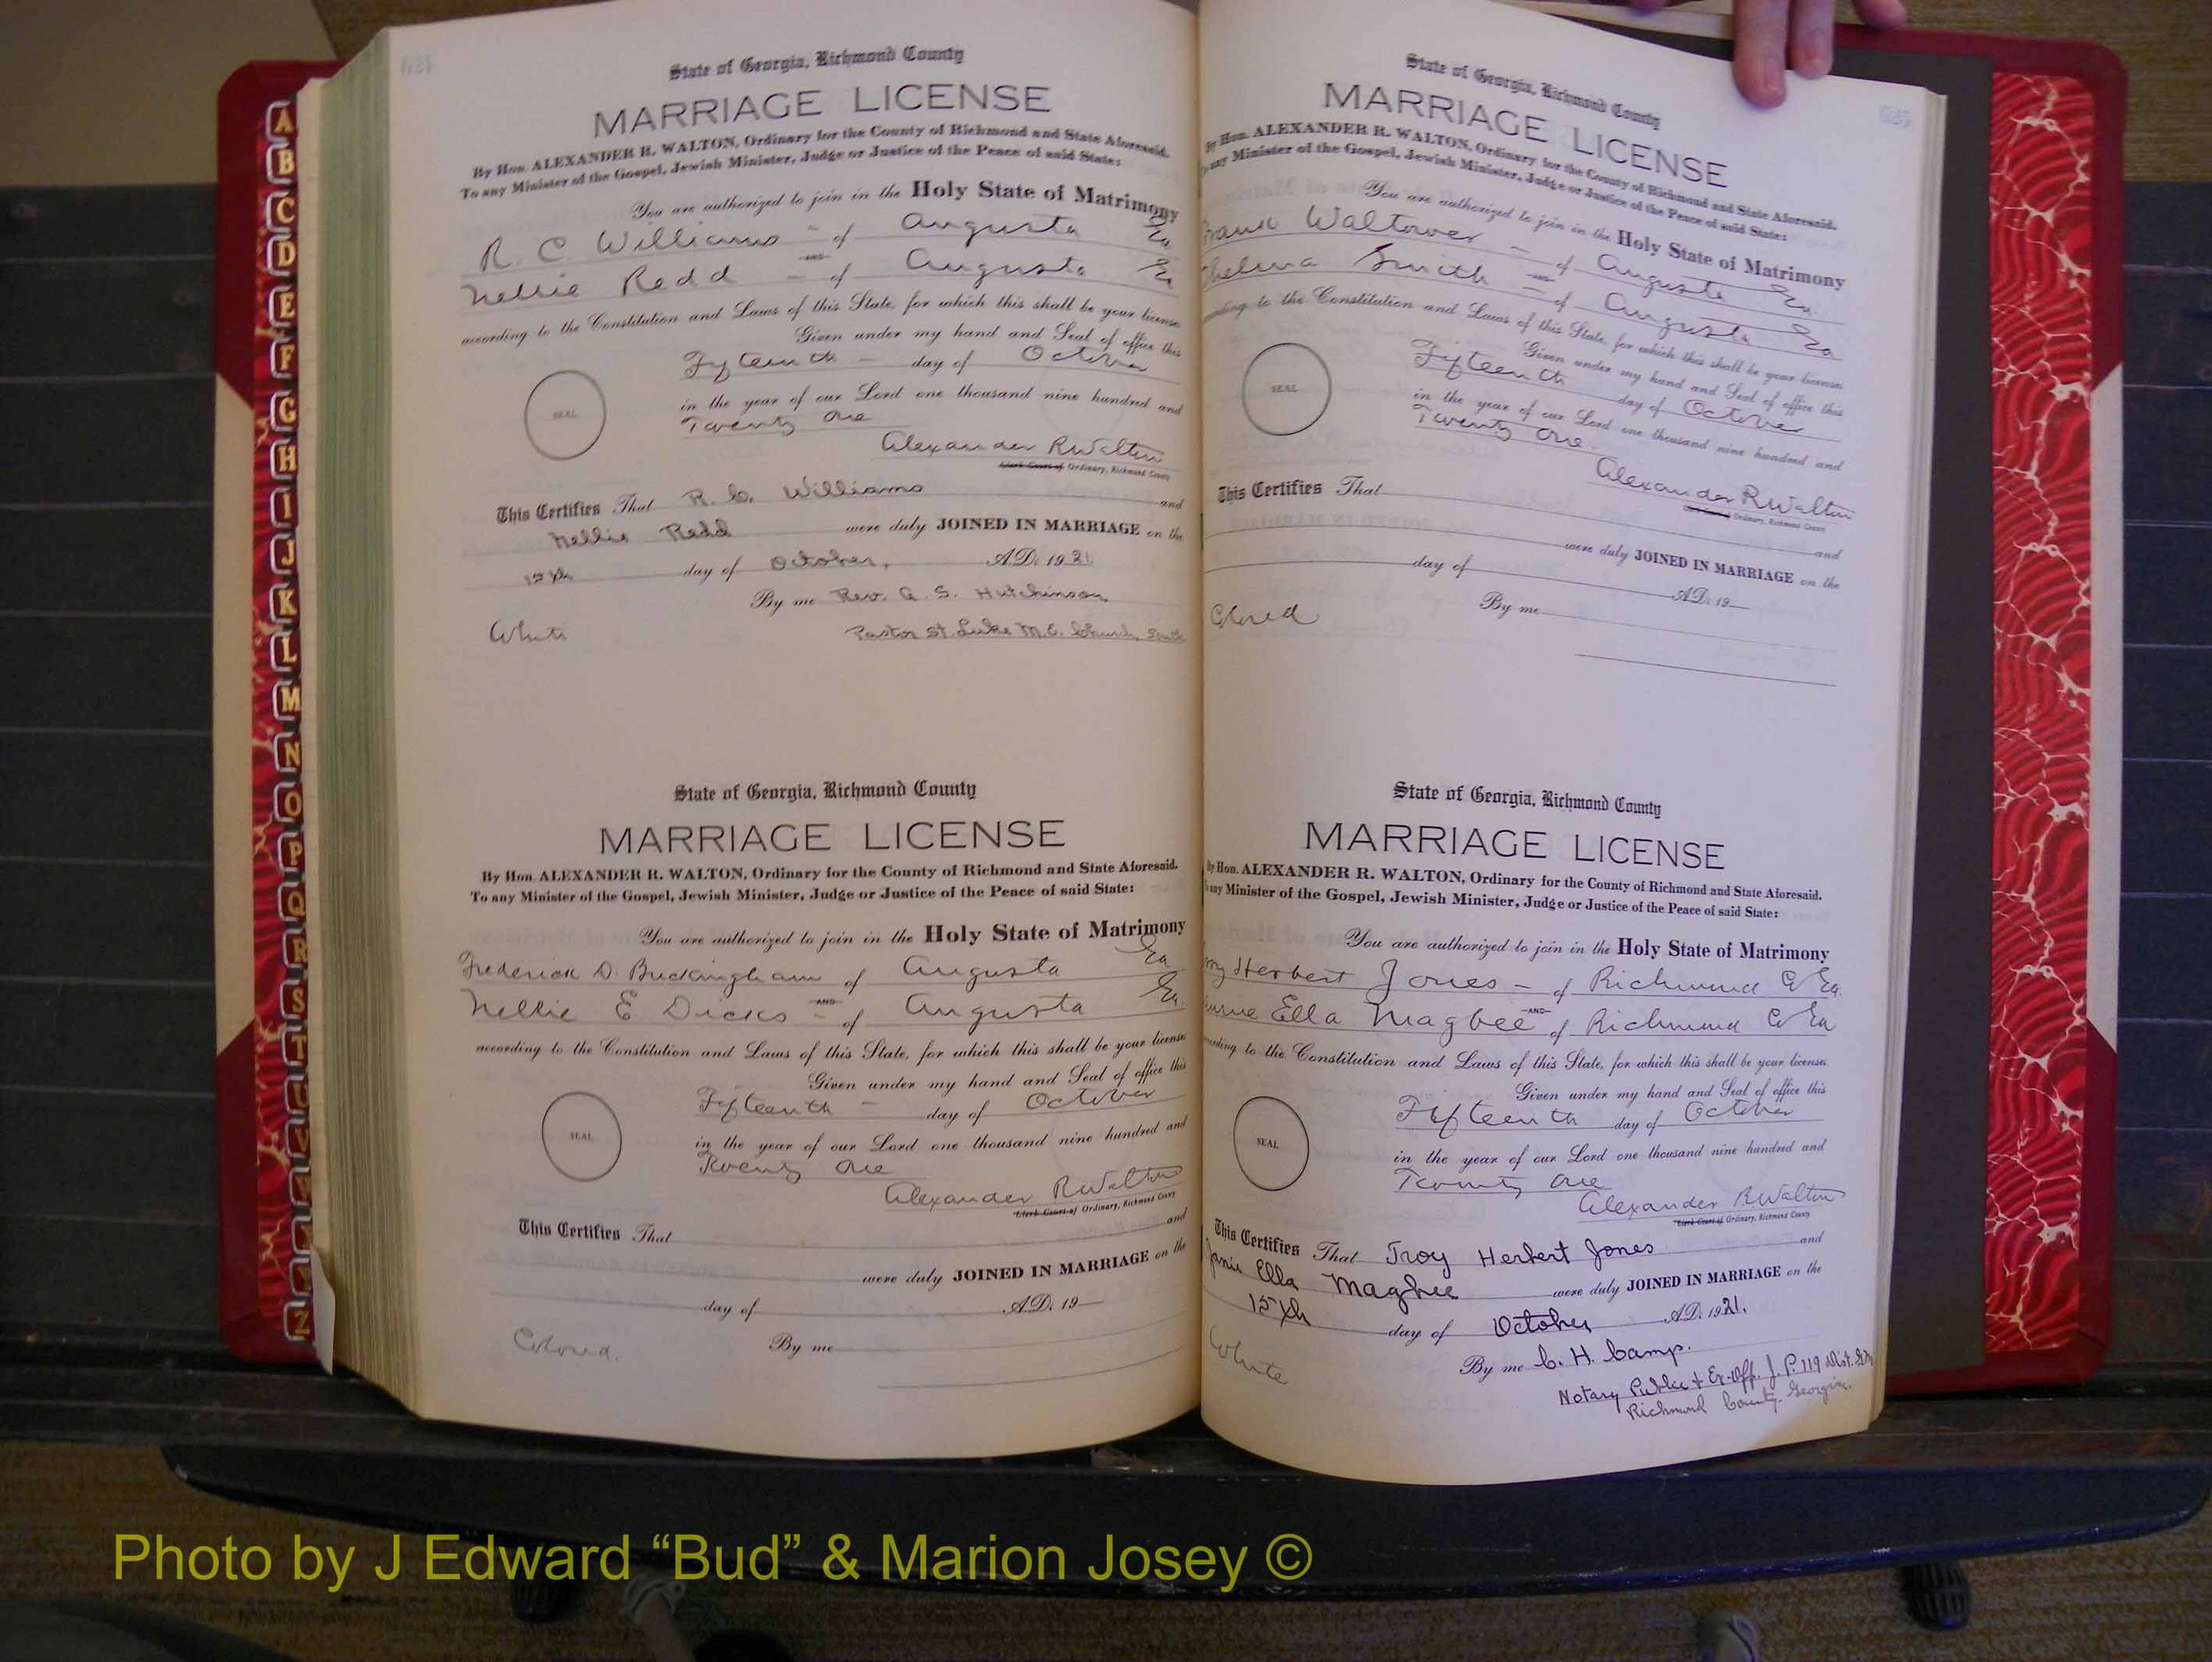 624
State of Georgia, Richmond County
MARRIAGE LICENSE
By Hon. ALEXANDER R. WALTON, Ordinary for the County of Richmond and State Aforesaid.
To any Minister of the Gospel, Jewish Minister, Judge or Justice of the Peace of said State:
You are authorized to join in the Holy State of Matrimony
R. C Williams - of Augusta Ga
AND
Nellie Redd - of Augusta Ga
according to the Constitution and Laws of this State, for which this shall be your license
Given under my hand and Seal of office this
Fifteenth - day of October
SEAL
in the year of our Lord one thousand nine hundred and
Twenty One
Alexander R Walton
Clerk Court of Ordinary, Richmond County
This Certifies That R. C. Williams and
Nellie Redd were duly JOINED IN MARRIAGE on the
15th day of October, A.D. 1921
By me Rev. A. S. Hutchinson,
White Pastor St. Luke M.E. Church, South
State of Georgia, Richmond County
MARRIAGE LICENSE
By Hon. ALEXANDER R. WALTON, Ordinary for the County of Richmond and State Aforesaid.
To any Minister of the Gospel, Jewish Minister, Judge or Justice of the Peace of said State:
You are authorized to join in the Holy State of Matrimony
Frederick D. Buckingham of Augusta Ga
AND
Nellie E Dicks - of Augusta Ga.
according to the Constitution and Laws of this State, for which this shall be your license
Given under my hand and Seal of office this
Fifteenth - day of October
SEAL
in the year of our Lord one thousand nine hundred and
Twenty One
Alexander R Walton
Clerk Court of Ordinary, Richmond County
This Certifies That and
were duly JOINED IN MARRIAGE on the
day of A.D. 19
Colored. By me
625
State of Georgia, Richmond County
MARRIAGE LICENSE
By Hon. ALEXANDER R. WALTON, Ordinary for the County of Richmond and State Aforesaid.
any Minister of the Gospel, Jewish Minister, Judge or Justice of the Peace of said State:
You are authorized to join in the Holy State of Matrimony
Waltower - of Augusta Ga.
AND
Thelma Smith - of Augusta Ga
to the Constitution and Laws of this State, for which this shall be your license
Given under my hand and Seal of office this
Fifteenth day of October
SEAL
in the year of our Lord one thousand nine hundred and
Twenty One
Alexander R Walton
Clerk Court of Ordinary, Richmond County
This Certifies That and
were duly JOINED IN MARRIAGE on the
day of A.D. 19
Colored By me
State of Georgia, Richmond County
MARRIAGE LICENSE
By Hon. ALEXANDER R. WALTON, Ordinary for the County of Richmond and State Aforesaid.
any Minister of the Gospel, Jewish Minister, Judge or Justice of the Peace of said State:
You are authorized to join in the Holy State of Matrimony
Herbert Jones - of Richmond Co Ga.
AND
Ella Magbee of Richmond Co Ga
to the Constitution and Laws of this State, for which this shall be your license
Given under my hand and Seal of office this
Fifteenth day of October
SEAL
in the year of our Lord one thousand nine hundred and
Twenty One
Alexander R Walton
Clerk Court of Ordinary, Richmond County
This Certifies That Troy Herbert Jones and
Janie Ella Magbee were duly JOINED IN MARRIAGE on the
15th day of October A.D. 1921.
White By me C. H. Camp.
Notary Public & Ex-Off. J. P. 119 Dist. G.M.
Richmond County. Georgia.
A
B
C
D
E
F
G
H
I
J
K
L
M
N
O
P
Q
R
S
T
U
V
Z
Photo by J Edward “Bud” & Marion Josey ©